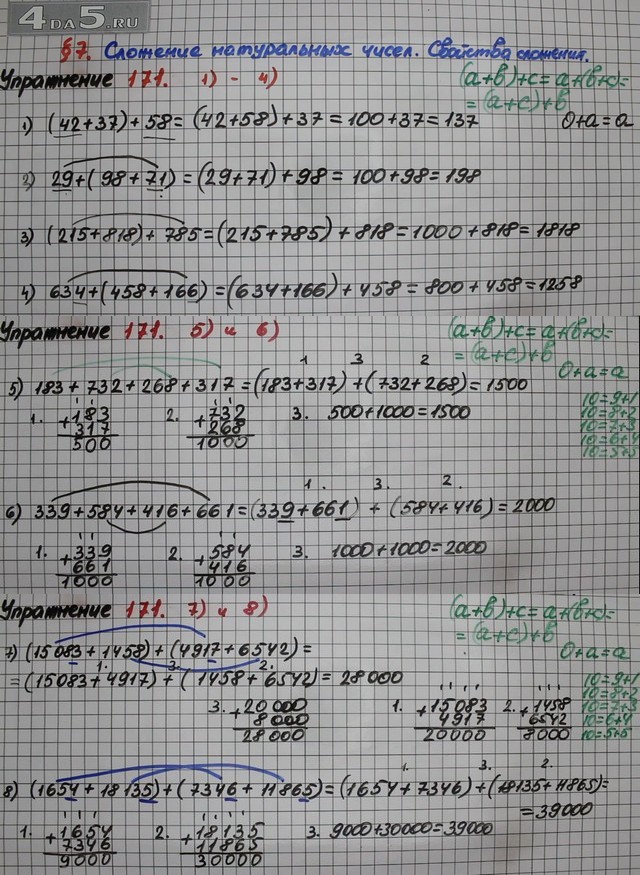 4DA5.RU
§7. Сложение натуральных чисел. Свойства сложения.
Упражнение 171. 1) - 4)
(a+b)+c=a+(b+c)=
=(a+c)+b
0+a=a
1) (42+37)+58=(42+58)+37=100+37=137
2) 29+(98+71)=(29+71)+98=100+98=198
3) (215+818)+785=(215+785)+818=1000+818=1818
4) 634+(458+166)=(634+166)+458=800+458=1258
Упражнение 171. 5) и 6)
(a+b)+c=a+(b+c)=
=(a+c)+b
0+a=a
10=9+1
10=8+2
10=7+3
10=6+4
10=5+5
1 3 2
5) 183+732+268+317=(183+317)+(732+268)=1500
1. +183
317
500
2. +732
268
1000
3. 500+1000=1500
1. 3. 2.
6) 339+584+416+661=(339+661)+(584+416)=2000
1. +339
661
1000
2. +584
416
1000
3. 1000+1000=2000
Упражнение 171. 7) и 8)
(a+b)+c=a+(b+c)=
=(a+c)+b
0+a=a
10=9+1
10=8+2
10=7+3
10=6+4
10=5+5
7) (15083+1458)+(4917+6542)=
1. 3. 2.
=(15083+4917)+(1458+6542)=28000
3. +20000
8000
28000
1. +15083
4917
20000
2. +1458
6542
8000
1. 3. 2.
8) (1654+18135)+(7346+11865)=(1654+7346)+(18135+11865)=
=39000
1. +1654
7346
9000
2. +18135
11865
30000
3. 9000+30000=39000